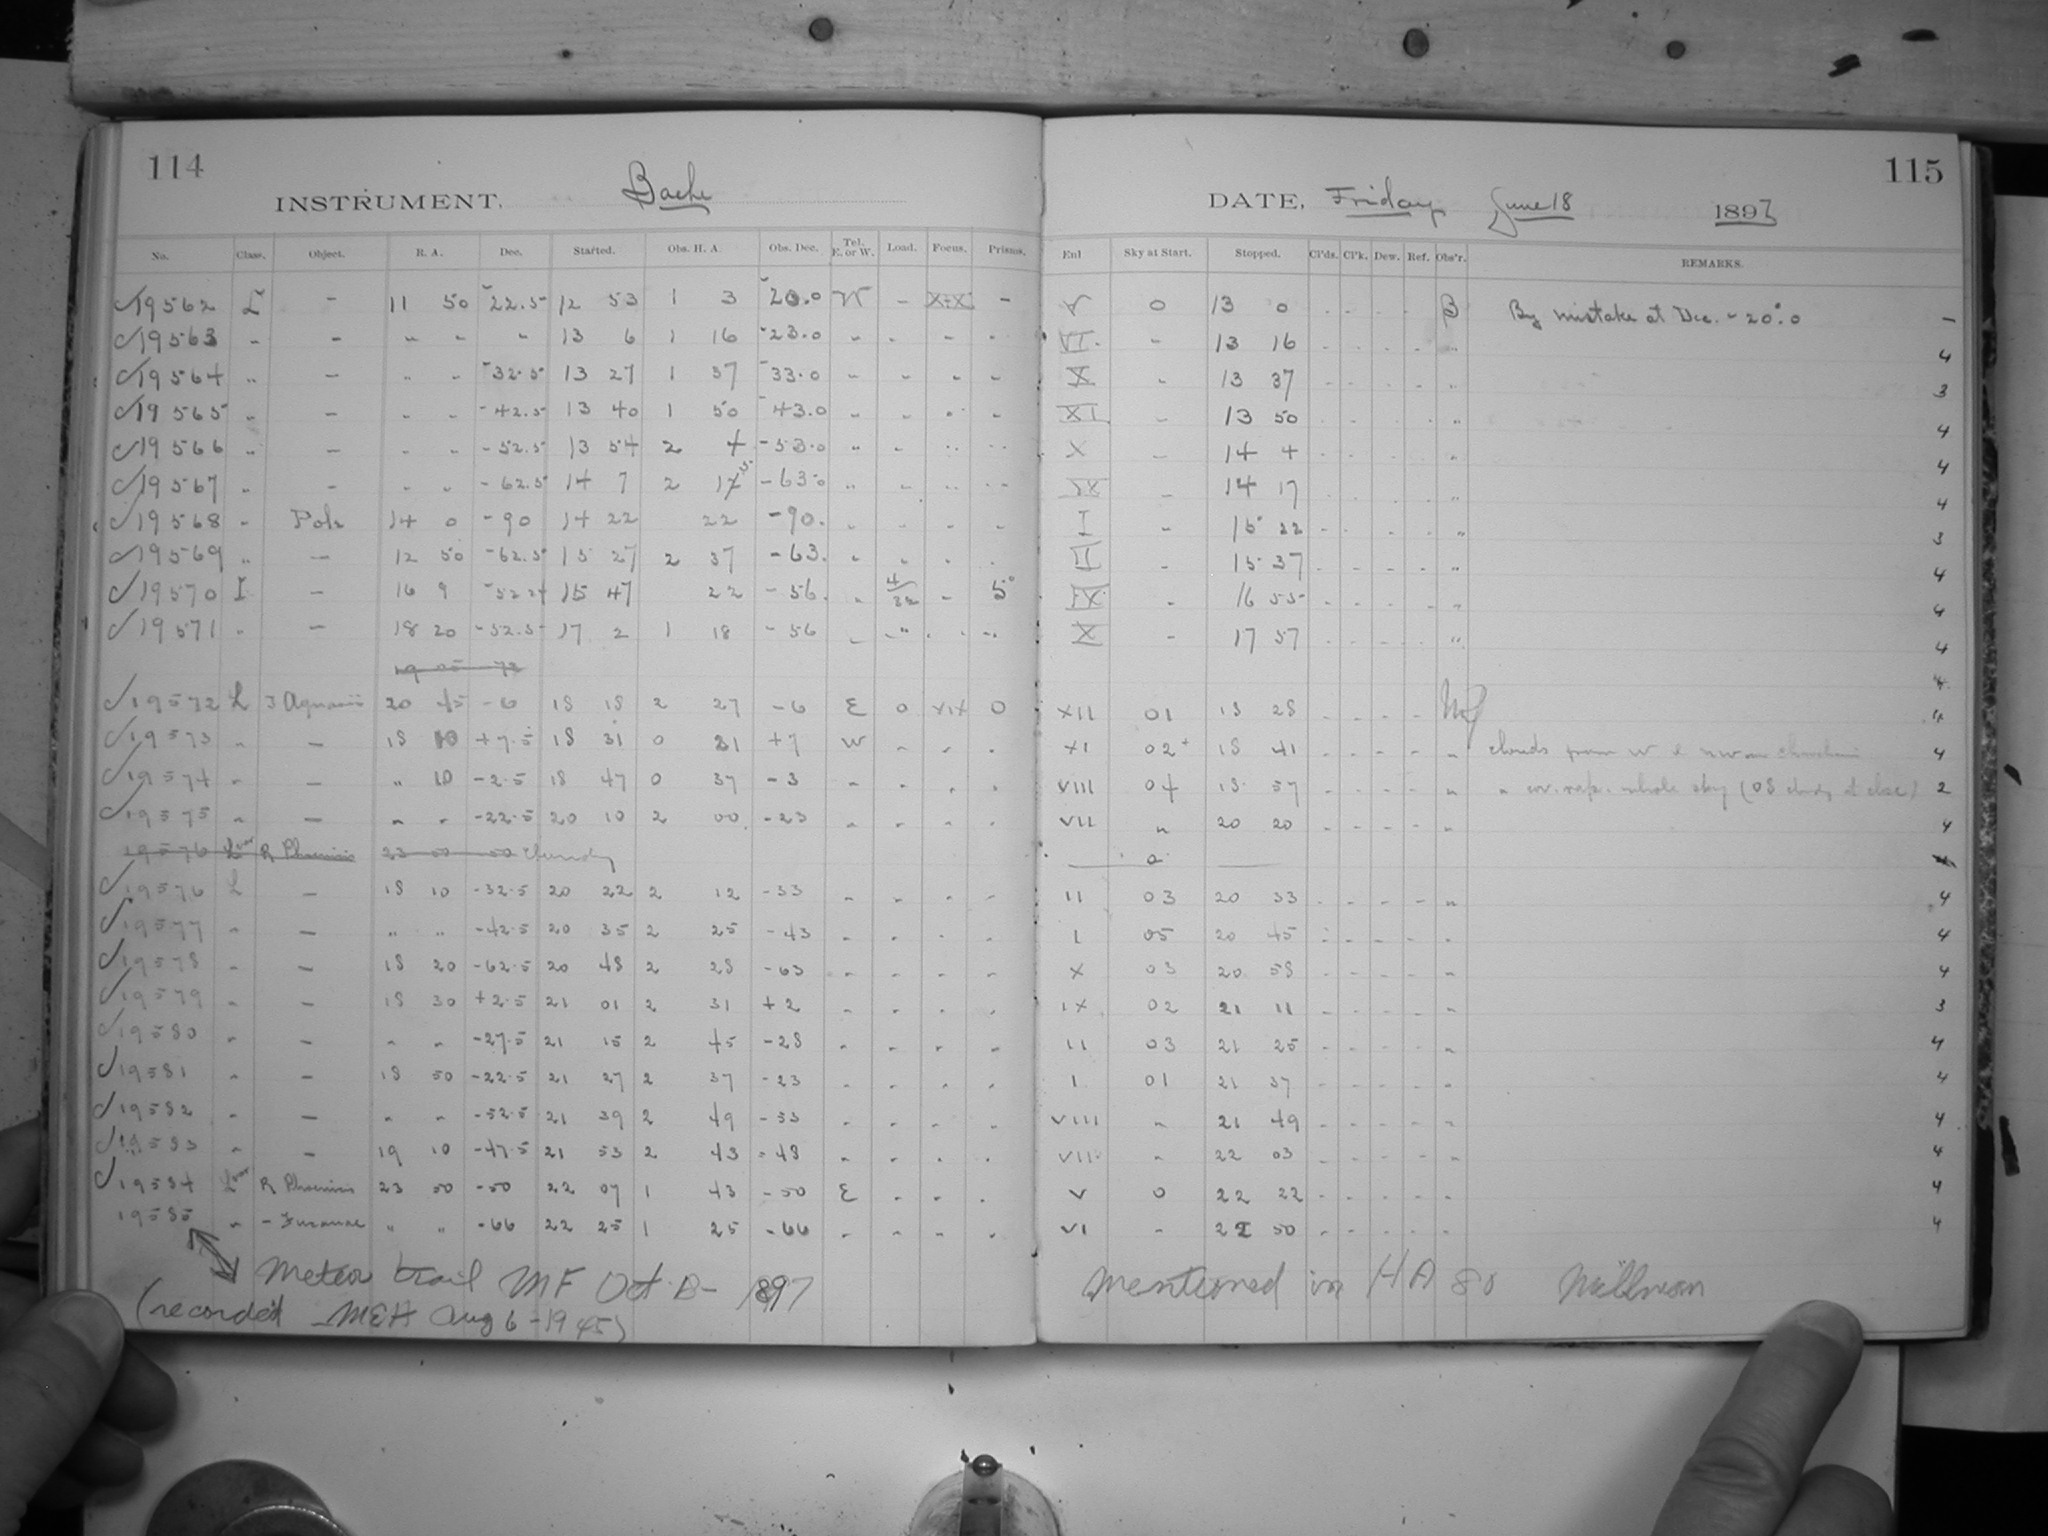 114
INSTRUMENT. Bache
No. Class. Object. R. A. Dec. Started. Obs. H. A. Obs. Dec. Tel. E. or W. Load. Focus. Prisms.
19562 L - 11 50 -22.5 12 53 1 3 -20.0 W - XIX -
19563 " - " " " 13 6 1 16 -23.0 " " " "
19564 " - " " -32.5 13 27 1 37 -33.0 " " " "
19565 " - " " -42.5 13 40 1 50 -43.0 " " " "
19566 " - " " -52.5 13 54 2 4 -53.0 " " " "
19567 " - " " -62.5 14 7 2 -63.0 " " " "
19568 " Pole 14 0 -90 14 22 22 -90. " " " "
19569 " - 12 50 -62.5 15 27 2 37 -63. " " " "
19570 I - 16 9 15 47 22 -56. " 5°
19571 " - 18 20 -52.5 17 2 1 18 -56 " " " "
19572 L 20 45 -6 18 18 2 27 -6 E 0 XIX 0
19573 " - 18 10 +7.5 18 31 0 31 +7 W " " "
19574 " - " 10 -2.5 18 47 0 37 -3 " " " "
19575 " - " " -22.5 20 10 2 00 -23 " " " "
19576 R Phoenicis 23 50 -50 Cloudy
19576 L - 18 10 -32.5 20 22 2 12 -33 " " " "
19577 " - " " -42.5 20 35 2 25 -43 " " " "
19578 " - 18 20 -62.5 20 48 2 28 -63 " " " "
19579 " - 18 30 +2.5 21 01 2 31 +2 " " " "
19580 " - " " -27.5 21 15 2 45 -28 " " " "
19581 " - 18 50 -22.5 21 27 2 37 -23 " " " "
19582 " - " " -52.5 21 39 2 49 -53 " " " "
19583 " - 19 10 -47.5 21 53 2 43 -48 " " " "
19584 L var R Phoenicis 23 50 -50 22 07 1 43 -50 E " " "
19585 " - Tucanae " " -66 22 25 1 25 -66 " " " "
Meteor trail MF Oct 1897
(recorded - MEH Aug 6 - 1945)
115
DATE, Friday June 18 1897
Enl Sky at Start. Stopped. Cl'ds. Cl'k. Dew. Ref. Obs'r. REMARKS.
V 0 13 0 - - - - B By mistake at Dec. -20°.0 -
VII " 13 16 - - - - " 4
X " 13 37 - - - - " 3
XI " 13 50 - - - - " 4
X " 14 4 - - - - " 4
IX " 14 17 - - - - " 4
I " 15 22 - - - - " 3
II " 15 37 - - - - " 4
IX " 16 55 - - - - " 4
X " 17 57 - - - - " 4
XII 01 18 28 - - - - 4
XI 02+ 18 41 - - - - " clouds from W & NW 4
VIII 04 18 57 - - - - " " whole sky 2
VII " 20 20 - - - - " 4
II 03 20 33 - - - - " 4
I 05 20 45 - - - - " 4
X 03 20 58 - - - - " 4
IX 02 21 11 - - - - " 3
II 03 21 25 - - - - " 4
I 01 21 37 - - - - " 4
VIII " 21 49 - - - - " 4
VII " 22 03 - - - - " 4
V 0 22 22 - - - - " 4
VI " 22 50 - - - - " 4
Mentioned in HA 80 Millman